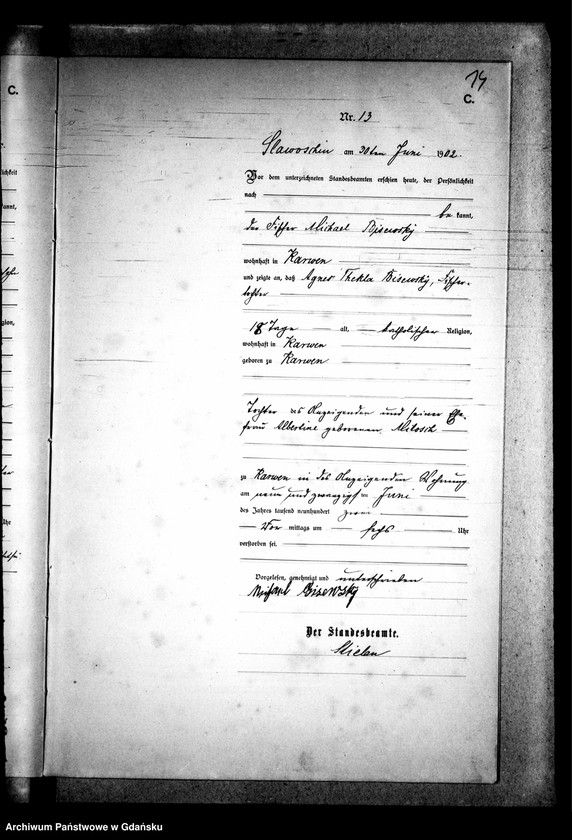 14
C.
C.
Nr. 13
Slawoschin am 30ten Juni 1902.
Vor dem unterzeichneten Standesbeamten erschien heute, der Persönlichkeit
nach
be kannt,
der Fischer Michael Bisewsky
wohnhaft in Karwen
und zeigte an, daß Agnes Thekla Bisewsky, Fischer-
tochter
18 Tage alt, katholischer Religion,
wohnhaft in Karwen
geboren zu Karwen
Tochter des Anzeigenden und seiner Ehe-
frau Albertine geborenen Milosch
zu Karwen in des Anzeigenden Wohnung
am neun und zwanzigsten Juni
des Jahres tausend neunhundert zwei
Vor mittags um sechs Uhr
verstorben sei.
Vorgelesen, genehmigt und unterschrieben
Michael Bisewsky
Der Standesbeamte.
Archiwum Państwowe w Gdańsku